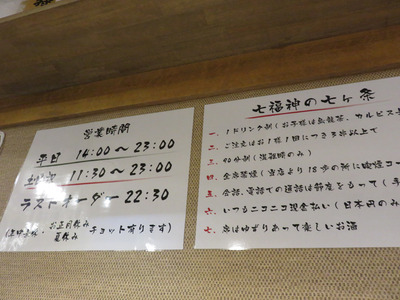 営業時間
平日 14:00〜23:00
土日祝 11:30〜23:00
ラストオーダー 22:30
お正月休み
夏休み チョット有ります)
七福神の七ヶ条
一、1ドリンク制(お子様は烏龍茶、カルピス
二、ご注文はお1様1回につき3品以上で
三、90分制(混雑時のみ)
四、全席禁煙(当店より18歩の所に喫煙コー
五、会話、電話での通話は静座をもって(
六、いつもニコニコ現金払い(日本円のみ
七、席はゆずりあって楽しいお酒